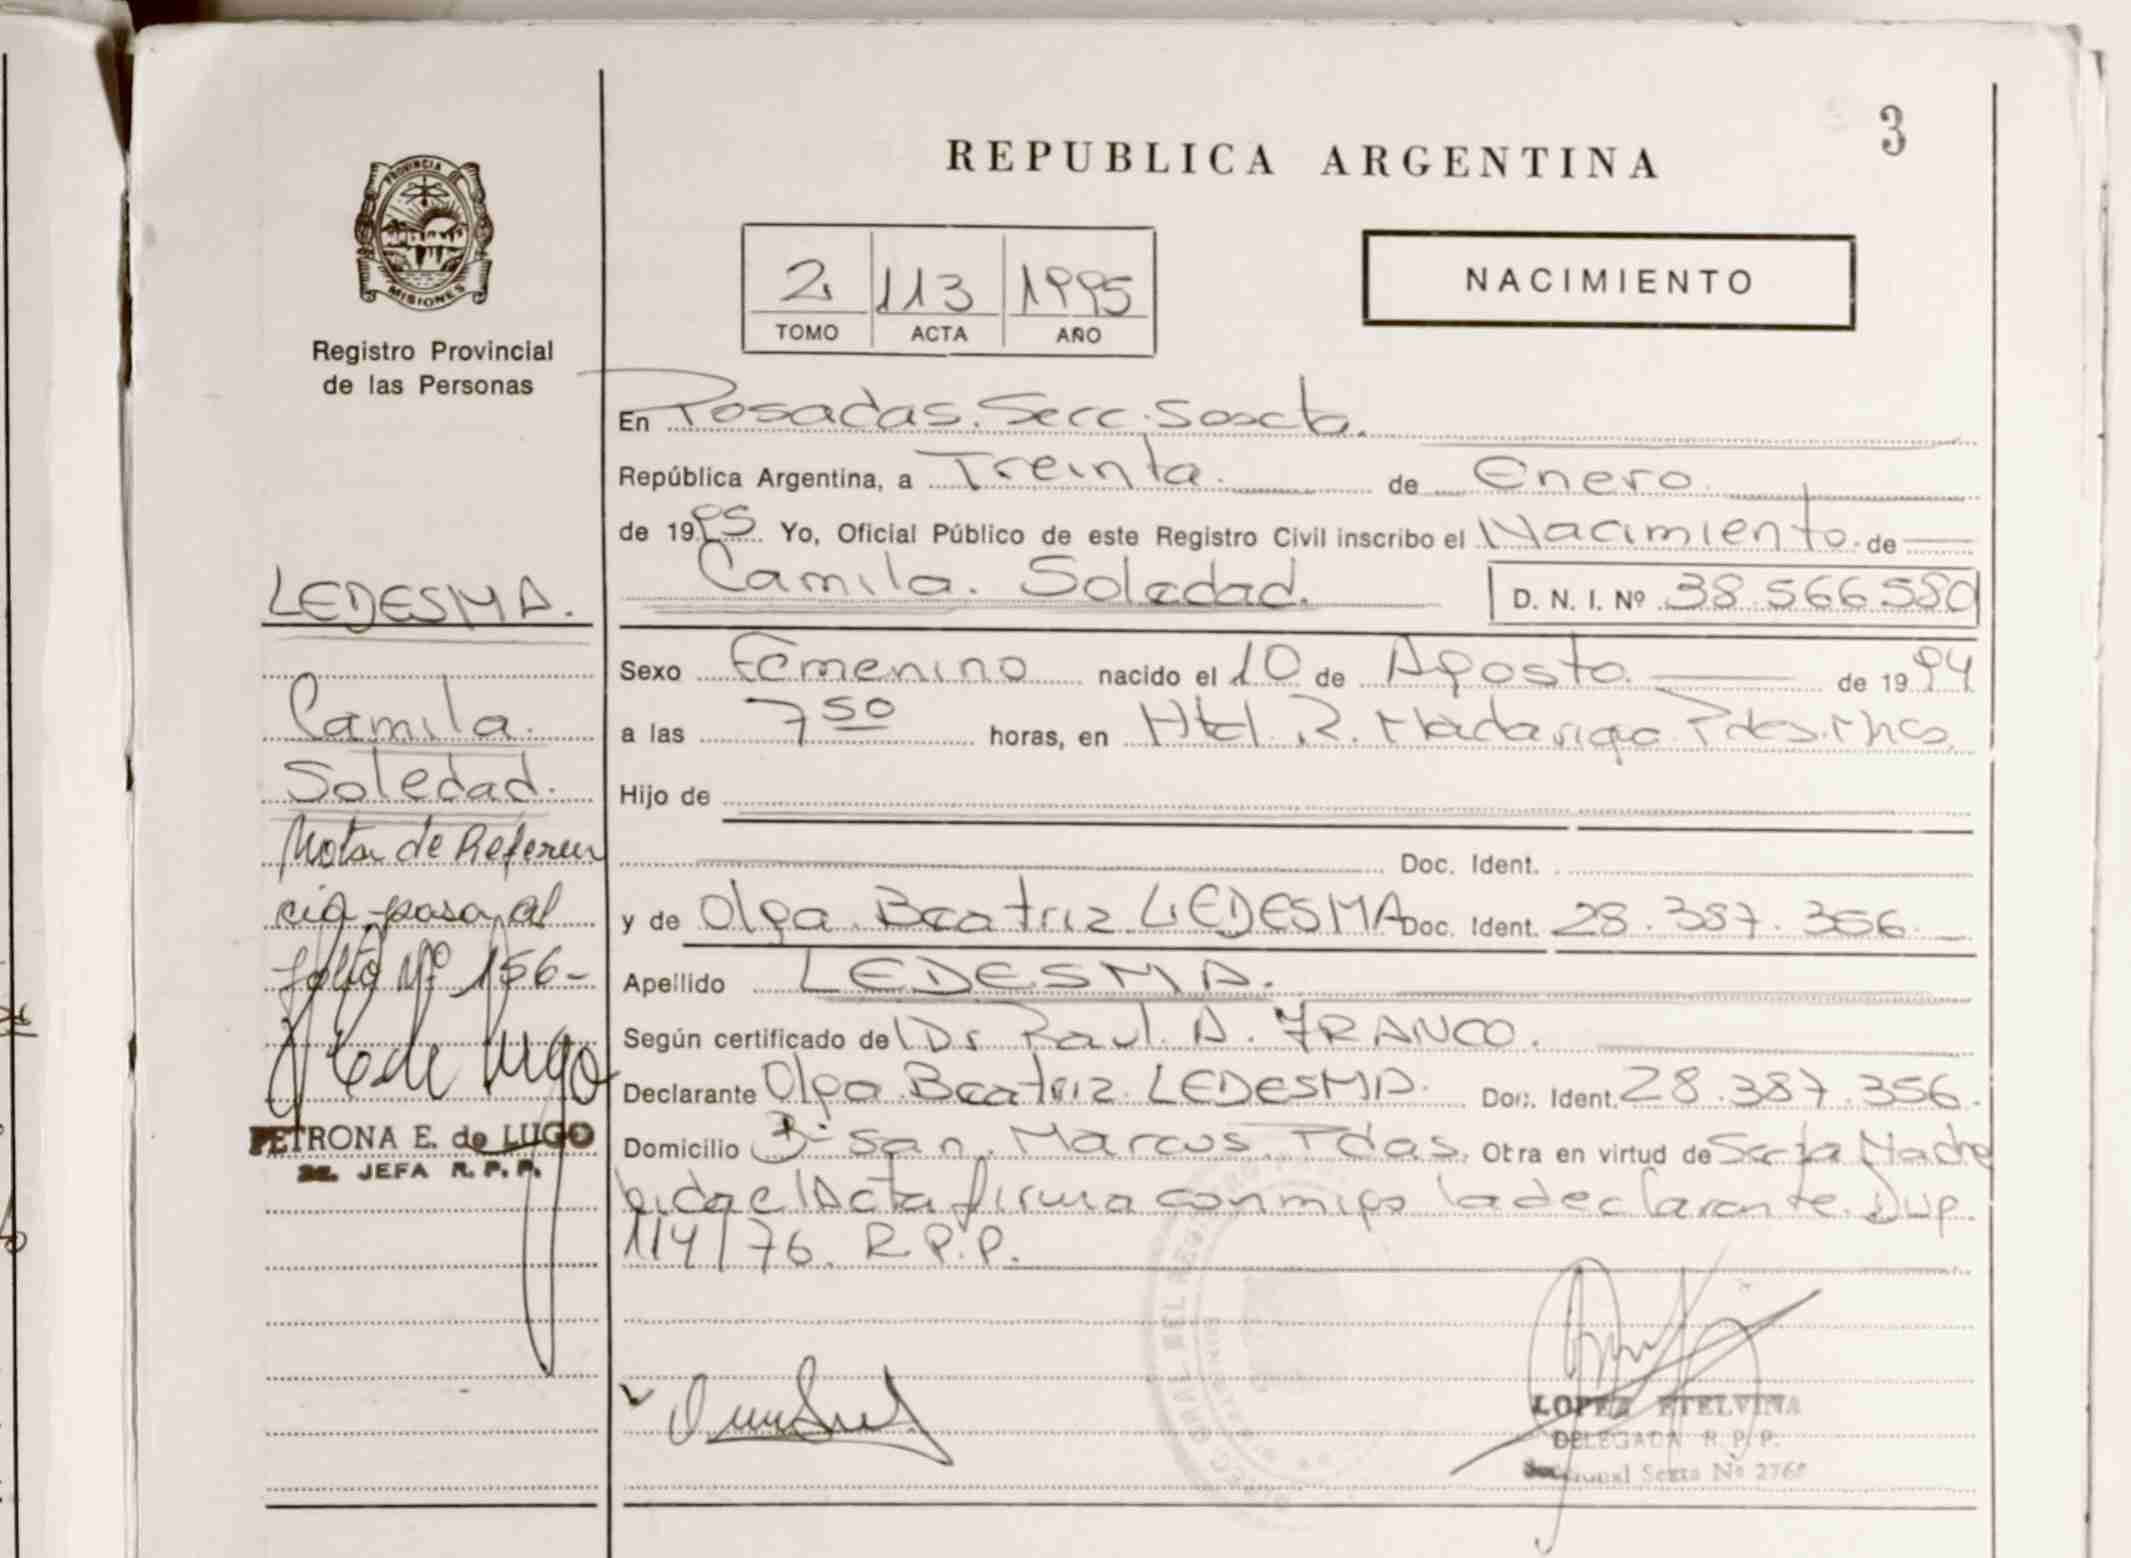 3
REPUBLICA ARGENTINA
PROVINCIA DE
MISIONES
Registro Provincial
de las Personas
2 113 1995
TOMO ACTA AÑO
NACIMIENTO
En Posadas. Secc. Sexta.
República Argentina, a Treinta. de Enero
de 1995 Yo, Oficial Público de este Registro Civil inscribo el Nacimiento. de
Camila. Soledad. D. N. I. Nº 38.566.580
Sexo Femenino nacido el 10 de Agosto de 1994
a las 7 50 horas, en Htal. R. Madariaga Pdas. Mnes.
Hijo de
Doc. Ident.
y de Olga. Beatriz. LEDESMA Doc. Ident. 28.387.356
Apellido LEDESMA.
Según certificado de Dr Raul. A. FRANCO.
Declarante Olga Beatriz. LEDESMA. Doc. Ident. 28.387.356.
Domicilio Bº San. Marcos. Pdas. Otra en virtud de Ser la Madre
leida el Acta firma conmigo la declarante. Dup.
114/76. R.P.P.
LEDESMA.
Camila.
Soledad.
Nota de Referen
cia pasa al
folio Nº 156-
PETRONA E. de LUGO
JEFA R. P. P.
LOPEZ ETELVINA
DELEGADA R. P. P.
Seccional Sexta Nº